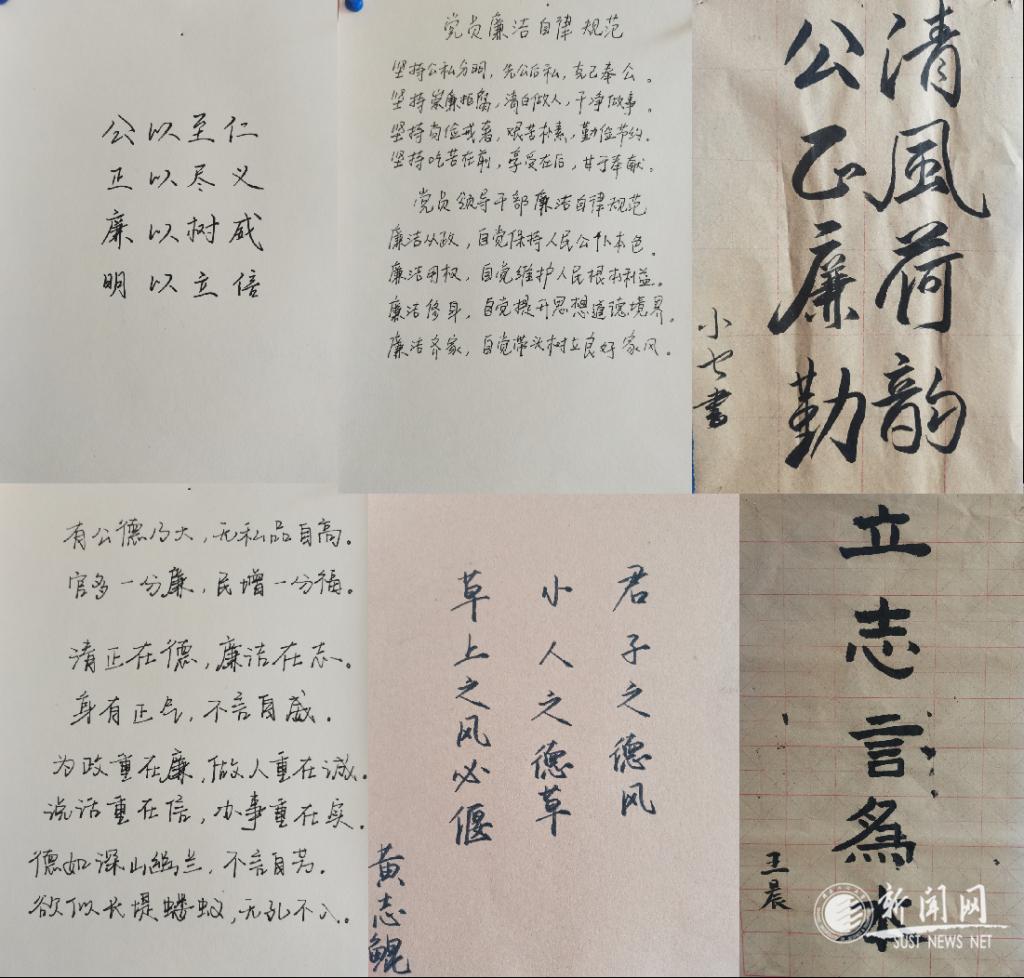 公以至仁
正以尽义
廉以树威
明以立信
党员廉洁自律规范
坚持公私分明，先公后私，克己奉公。
坚持崇廉拒腐，清白做人，干净做事。
坚持尚俭戒奢，艰苦朴素，勤俭节约。
坚持吃苦在前，享受在后，甘于奉献。
党员领导干部廉洁自律规范
廉洁从政，自觉保持人民公仆本色。
廉洁用权，自觉维护人民根本利益。
廉洁修身，自觉提升思想道德境界。
廉洁齐家，自觉带头树立良好家风。
清風荷韵
公正廉勤
小七書
有公德乃大，无私品自高。
官多一分廉，民增一分福。
清正在德，廉洁在志。
身有正气，不言自威。
为政重在廉，做人重在诚。
说话重在信，办事重在实。
德如深山幽兰，不言自芳。
欲似长堤蝼蚁，无孔不入。
君子之德风
小人之德草
草上之风必偃
黄志鲲
立志言為本
王晨
新闻网
SUST NEWS NET